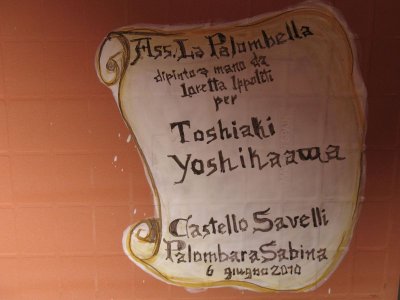 Ass. La Palombella
dipinto a mano da
Loretta Ippoliti
per
Toshiaki
Yoshikaawa
Castello Savelli
Palombara Sabina
6 giugno 2010